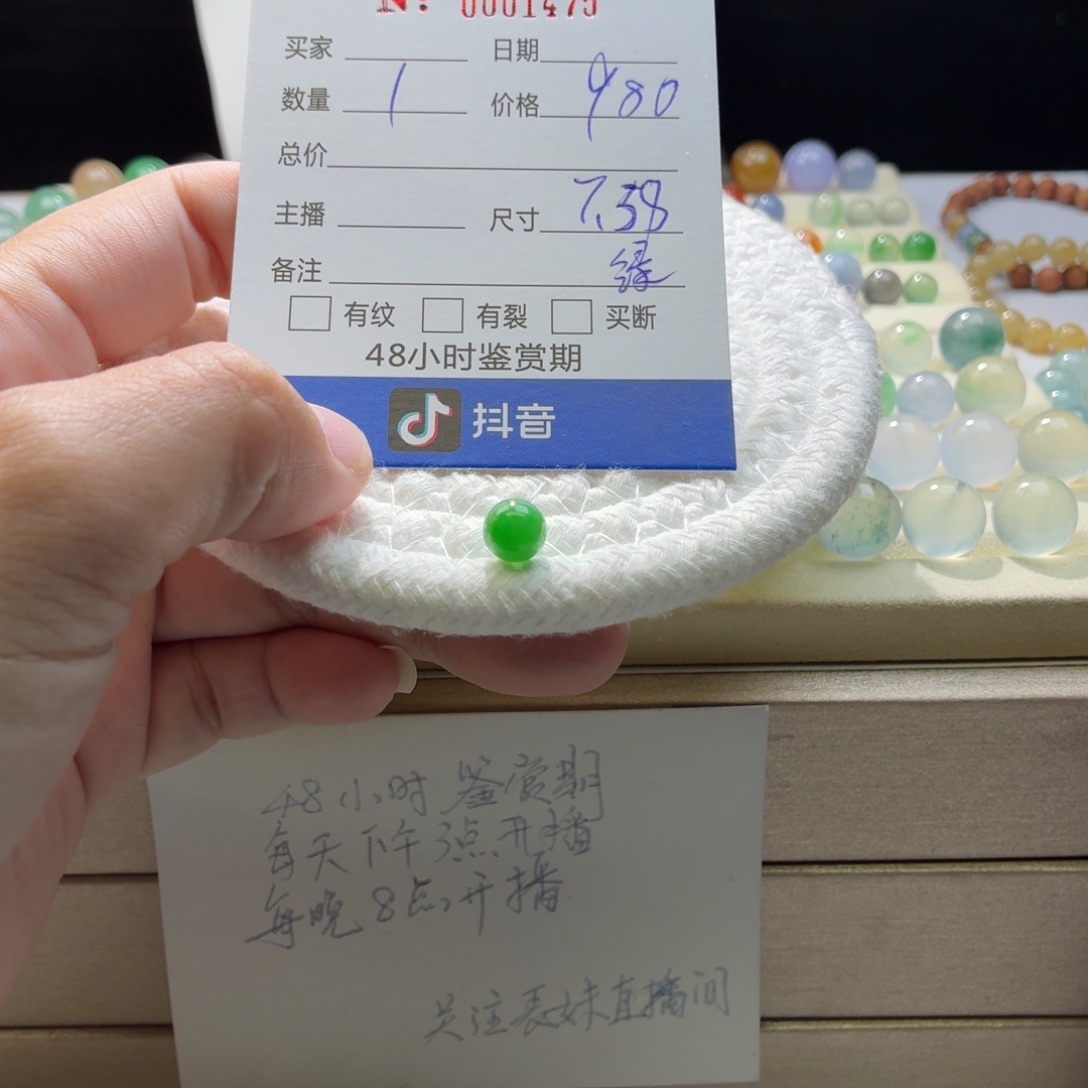 No: 0001475
买家 日期
数量 1 价格 980
总价
主播 尺寸 7.58
备注 缘
有纹 有裂 买断
48小时鉴赏期
抖音
48小时鉴赏期
每天下午3点开播
每晚8点开播
关注表妹直播间